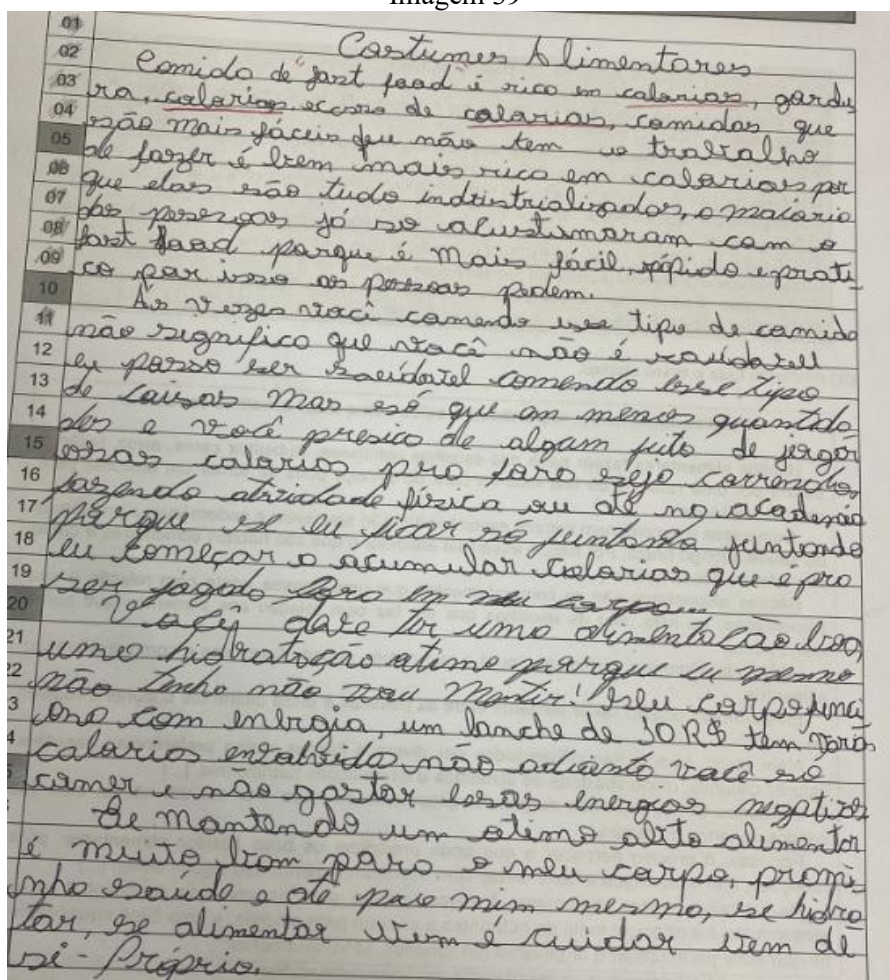 Imagem 39
01
02 Costumes Alimentares
03 Comida de "fast food" é rico em calorias, gordu
04 ra, calorias, ecesso de calorias, comidas que
05 são mais fáceis que não tem o trabalho
06 de fazer é bem mais rico em calorias por
07 que elas são tudo indústrializados, a maioria
08 das pessoas já se acustumaram com o
09 fast food porque é mais fácil, rápido e prati
10 co por isso as pessoas pedem.
11 Às vezes você comendo esse tipo de comida
12 não significa que você não é saudavel
13 eu posso ser saudavel comendo esse tipo
14 de coisas mas só que em menos quantida
15 des e você presica de algum jeito de jogar
essas calorias pra fora seja correndo,
16 fazendo atividade física ou até na academia
17 porque se eu ficar só juntando juntando
18 eu começar a acumular calorias que é pra
19 ser jogada fora em meu corpo...
20 Você deve ter uma alimentação boa,
21 uma hidratação otima porque eu mesmo
22 não tenho não vou mentir! Seu corpo funci
3 ona com energia, um lanche de 30R$ tem varias
4 calorias não adianta você só
comer e não gastar essas energias negativas
Se mantendo um otimo alimentar
é muito bom para o meu corpo, pra mi
nha saúde e até para mim mesmo, se hidra
tar, se alimentar bem é cuidar bem de
si-Próprio.